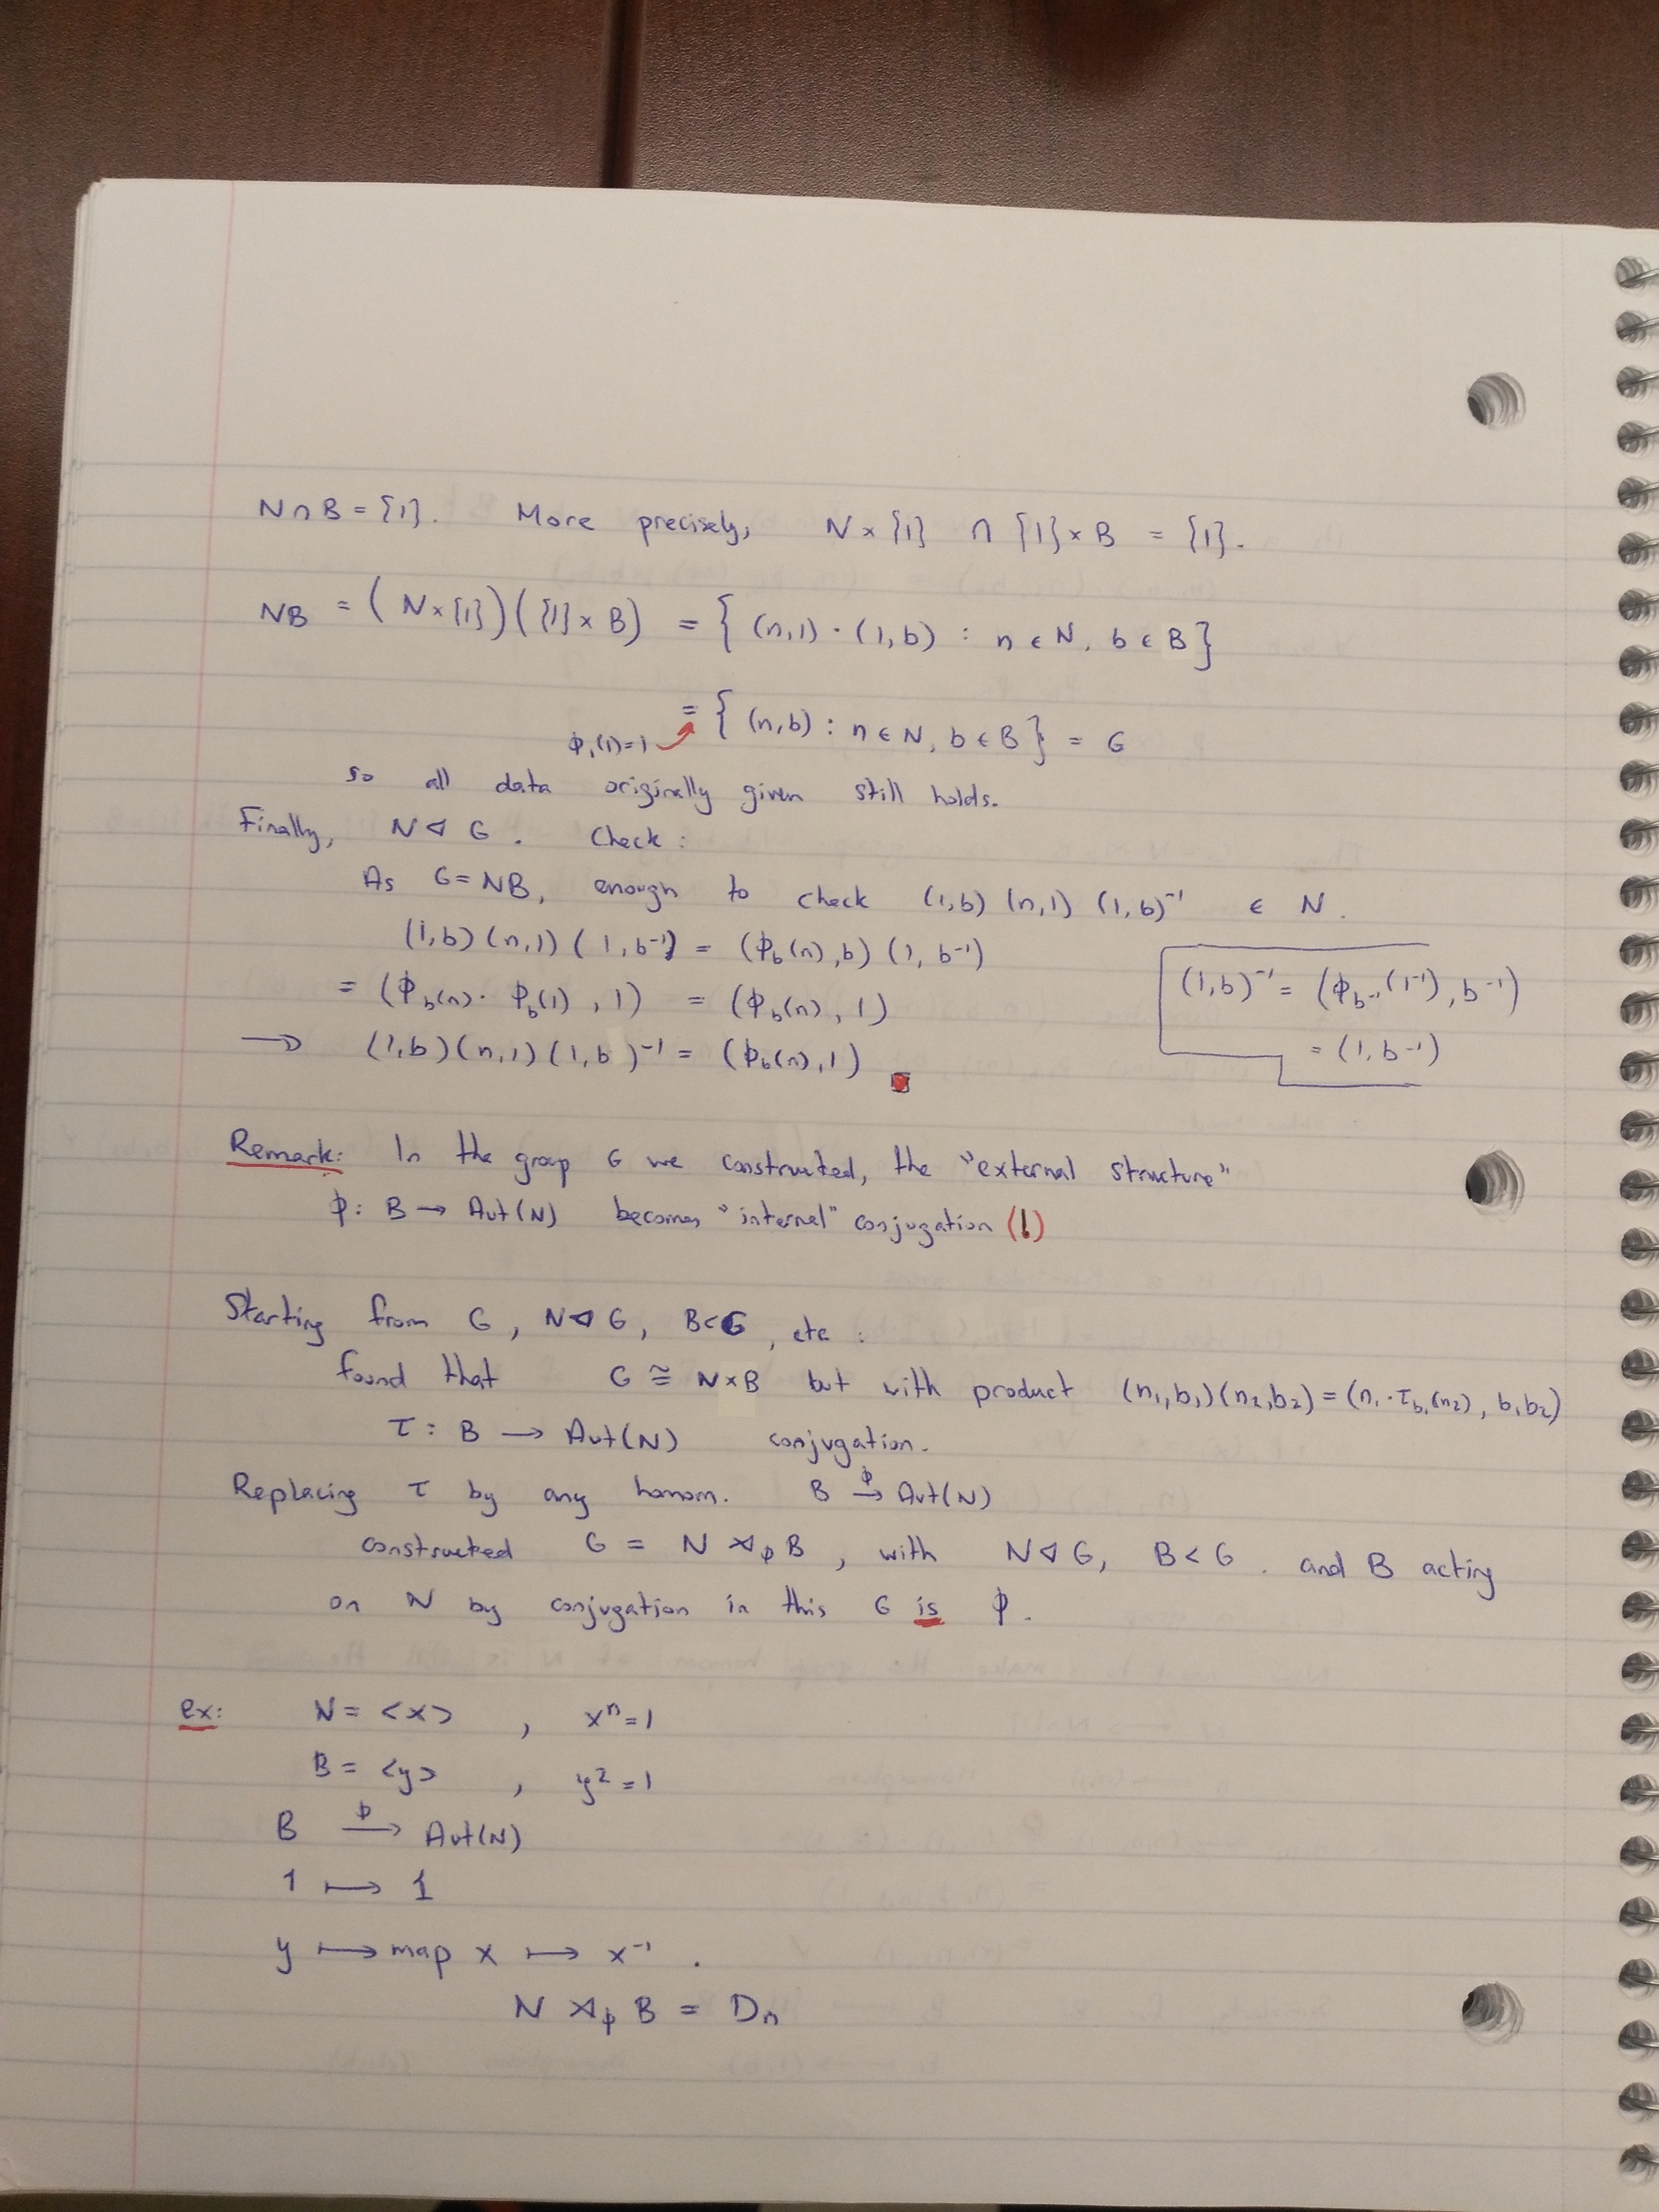 N ∩ B = {1}. More precisely, N × {1} ∩ {1} × B = {1}.
NB = (N × {1})({1} × B) = { (n,1) · (1,b) : n ∈ N, b ∈ B }
= { (n,b) : n ∈ N, b ∈ B } = G
ϕ₁(1)=1
so all data originally given still holds.
Finally, N ◁ G. Check:
As G = NB, enough to check (1,b) (n,1) (1,b)⁻¹ ∈ N.
(1,b) (n,1) (1, b⁻¹) = (ϕ_b(n), b) (1, b⁻¹)
= (ϕ_b(n) · ϕ_b(1), 1) = (ϕ_b(n), 1)
→ (1,b)(n,1)(1,b)⁻¹ = (ϕ_b(n), 1)
(1,b)⁻¹ = (ϕ_b⁻¹(1⁻¹), b⁻¹)
= (1, b⁻¹)
Remark: In the group G we constructed, the "external structure"
ϕ: B → Aut(N) becomes "internal" conjugation (!)
Starting from G, N ◁ G, B < G, etc :
found that G ≅ N × B but with product (n₁,b₁)(n₂,b₂) = (n₁·τ_b₁(n₂), b₁b₂)
τ : B → Aut(N) conjugation.
Replacing τ by any homom. B →^ϕ Aut(N)
constructed G = N ⋊_ϕ B, with N ◁ G, B < G. and B acting
on N by conjugation in this G is ϕ.
ex: N = <x> , xⁿ = 1
B = <y> , y² = 1
B →^ϕ Aut(N)
1 ↦ 1
y ↦ map x ↦ x⁻¹.
N ⋊_ϕ B = Dₙ